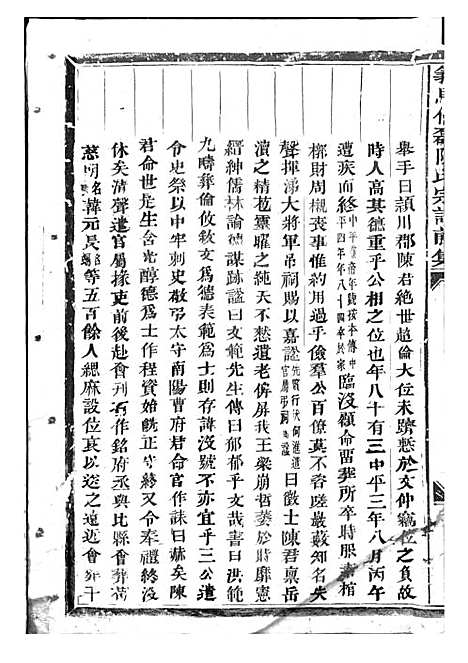 陳氏宗譜前集
舉手曰潁川郡陳君絕世超倫大位未躋慙於文仲竊位之負故
時人高其德重乎公相之位也年八十有三中平三年八月丙午
遭疾而終中平年帝年號按本傳中平四年年八十四卒於家臨沒顧命留葬所卒時服素棺
槨財周櫬喪事惟約用過乎儉羣公百僚莫不咨嗟巖藪知名失
聲揮涕大將軍弔祠賜以嘉諡先賢行狀何進遣官屬弔祠為諡曰徵士陳君稟岳
瀆之精苞靈曜之純天不憖遺老俾屏我王梁崩哲萎於時靡憲
縉紳儒林論德謀跡諡曰文範先生傳曰郁郁乎文哉書曰洪範
九疇彝倫攸敘文爲德表範爲士則存誨沒號不亦宜乎三公遣
令史祭以中牢刺史敬弔太守南陽曹府君命官作誄曰赫矣陳
君命世是生含光醇德爲士作程資始旣正守終又令奉禮終沒
休矣清聲遣官屬掾吏前後赴會刊石作銘府丞與比縣會葬荀
慈明名爽韓元長名等五百餘人緦麻設位哀以送之遠近會葬千